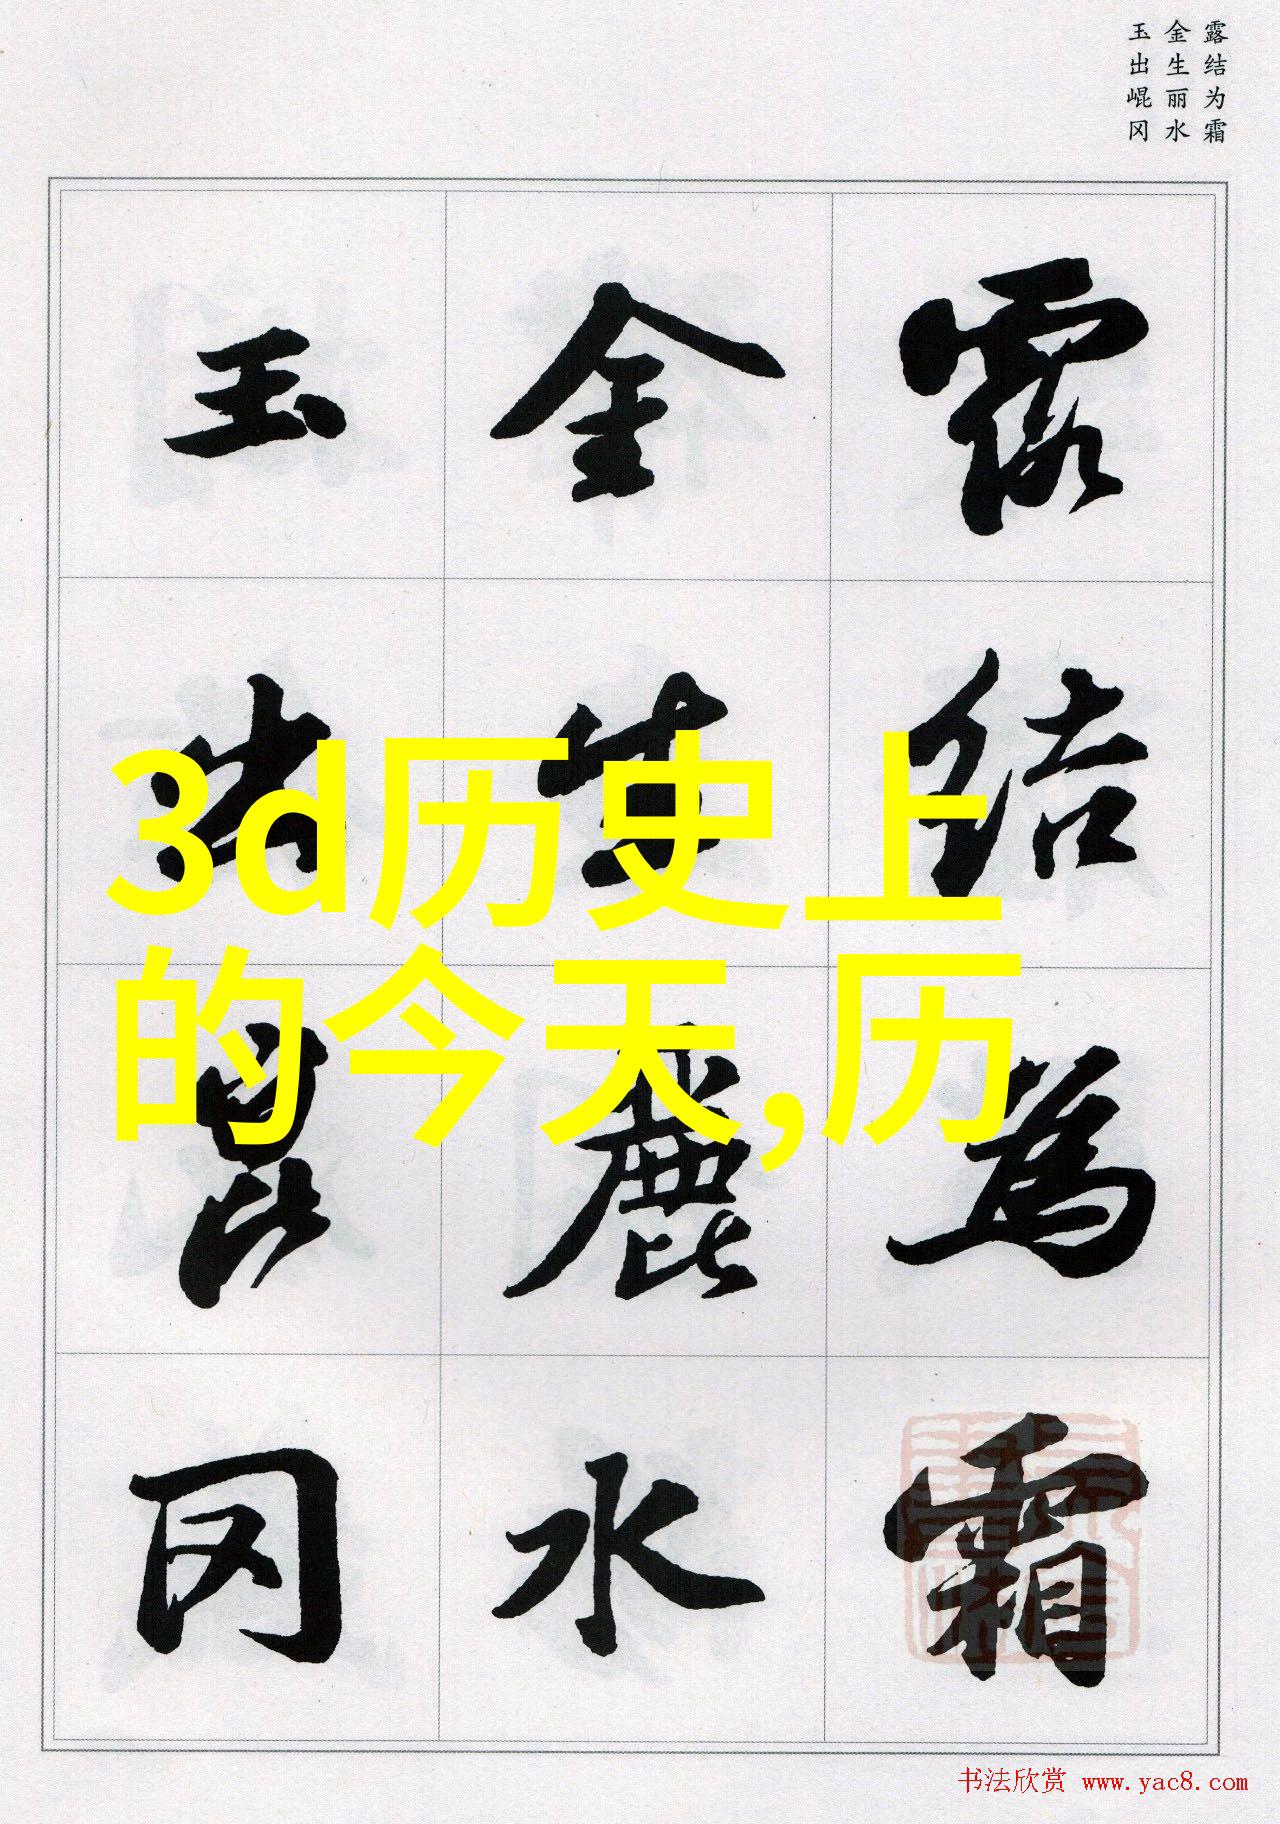 露结为霜
金生丽水
玉出崐冈
露结為霜
金生麗水
玉出崑冈
3d历史上
的今天,历
书法欣赏 www.yac8.com